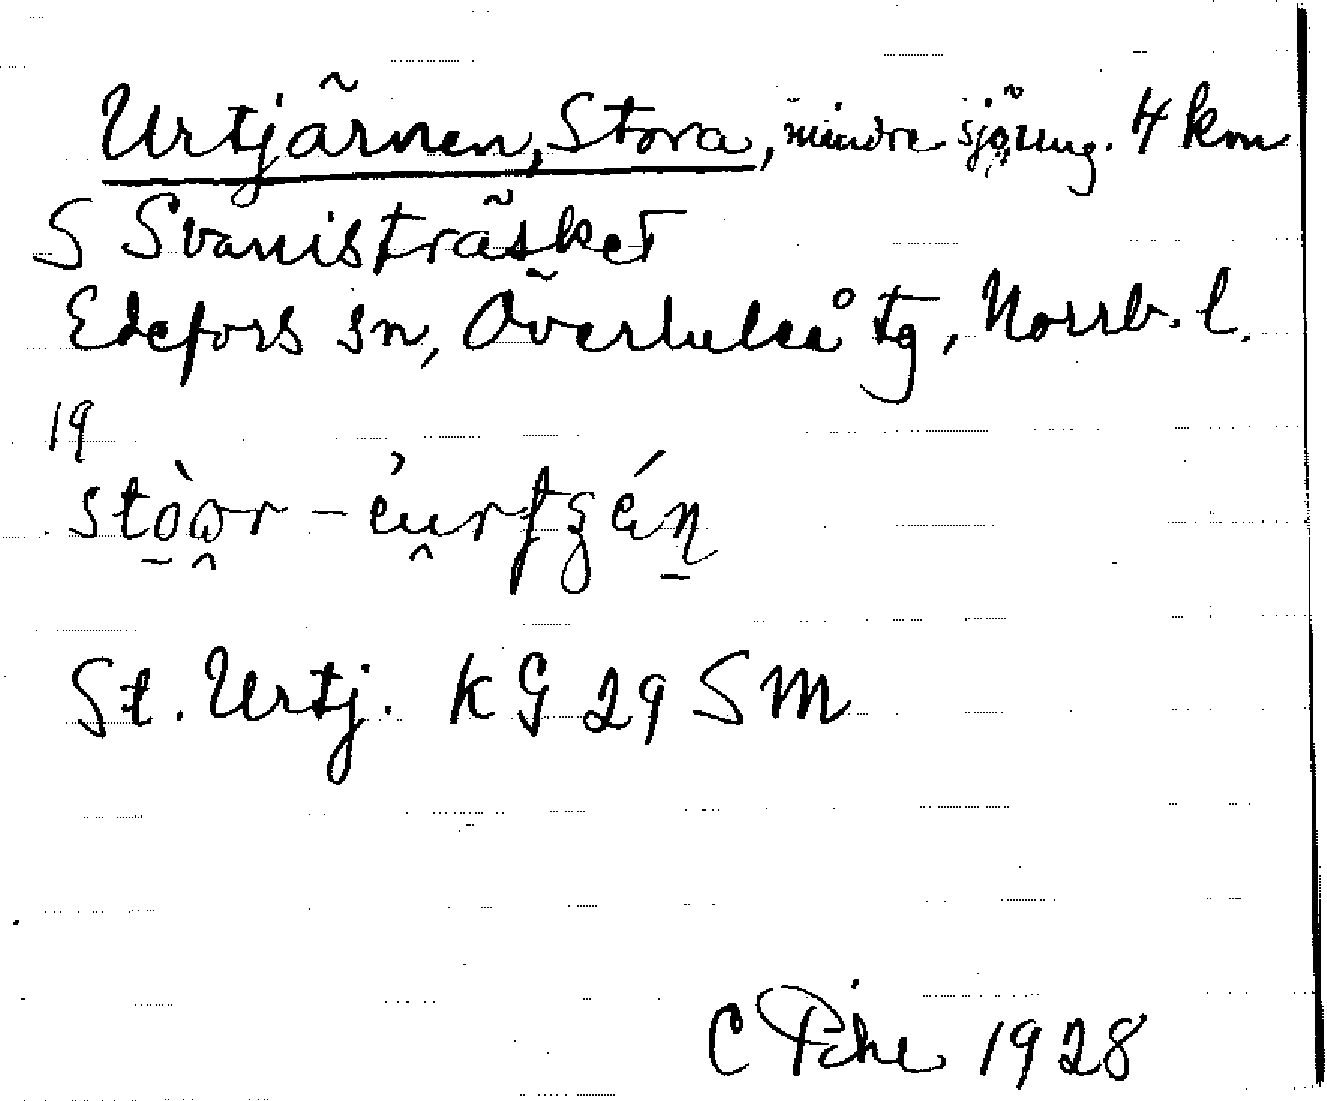 Urtjärnen, Stora, mindre sjö, ung. 4 km
S Svanisträsket
Edefors sn, Överluleå tg, Norrb. l.
19
St. Urtj. KG 29 SM
C 1928